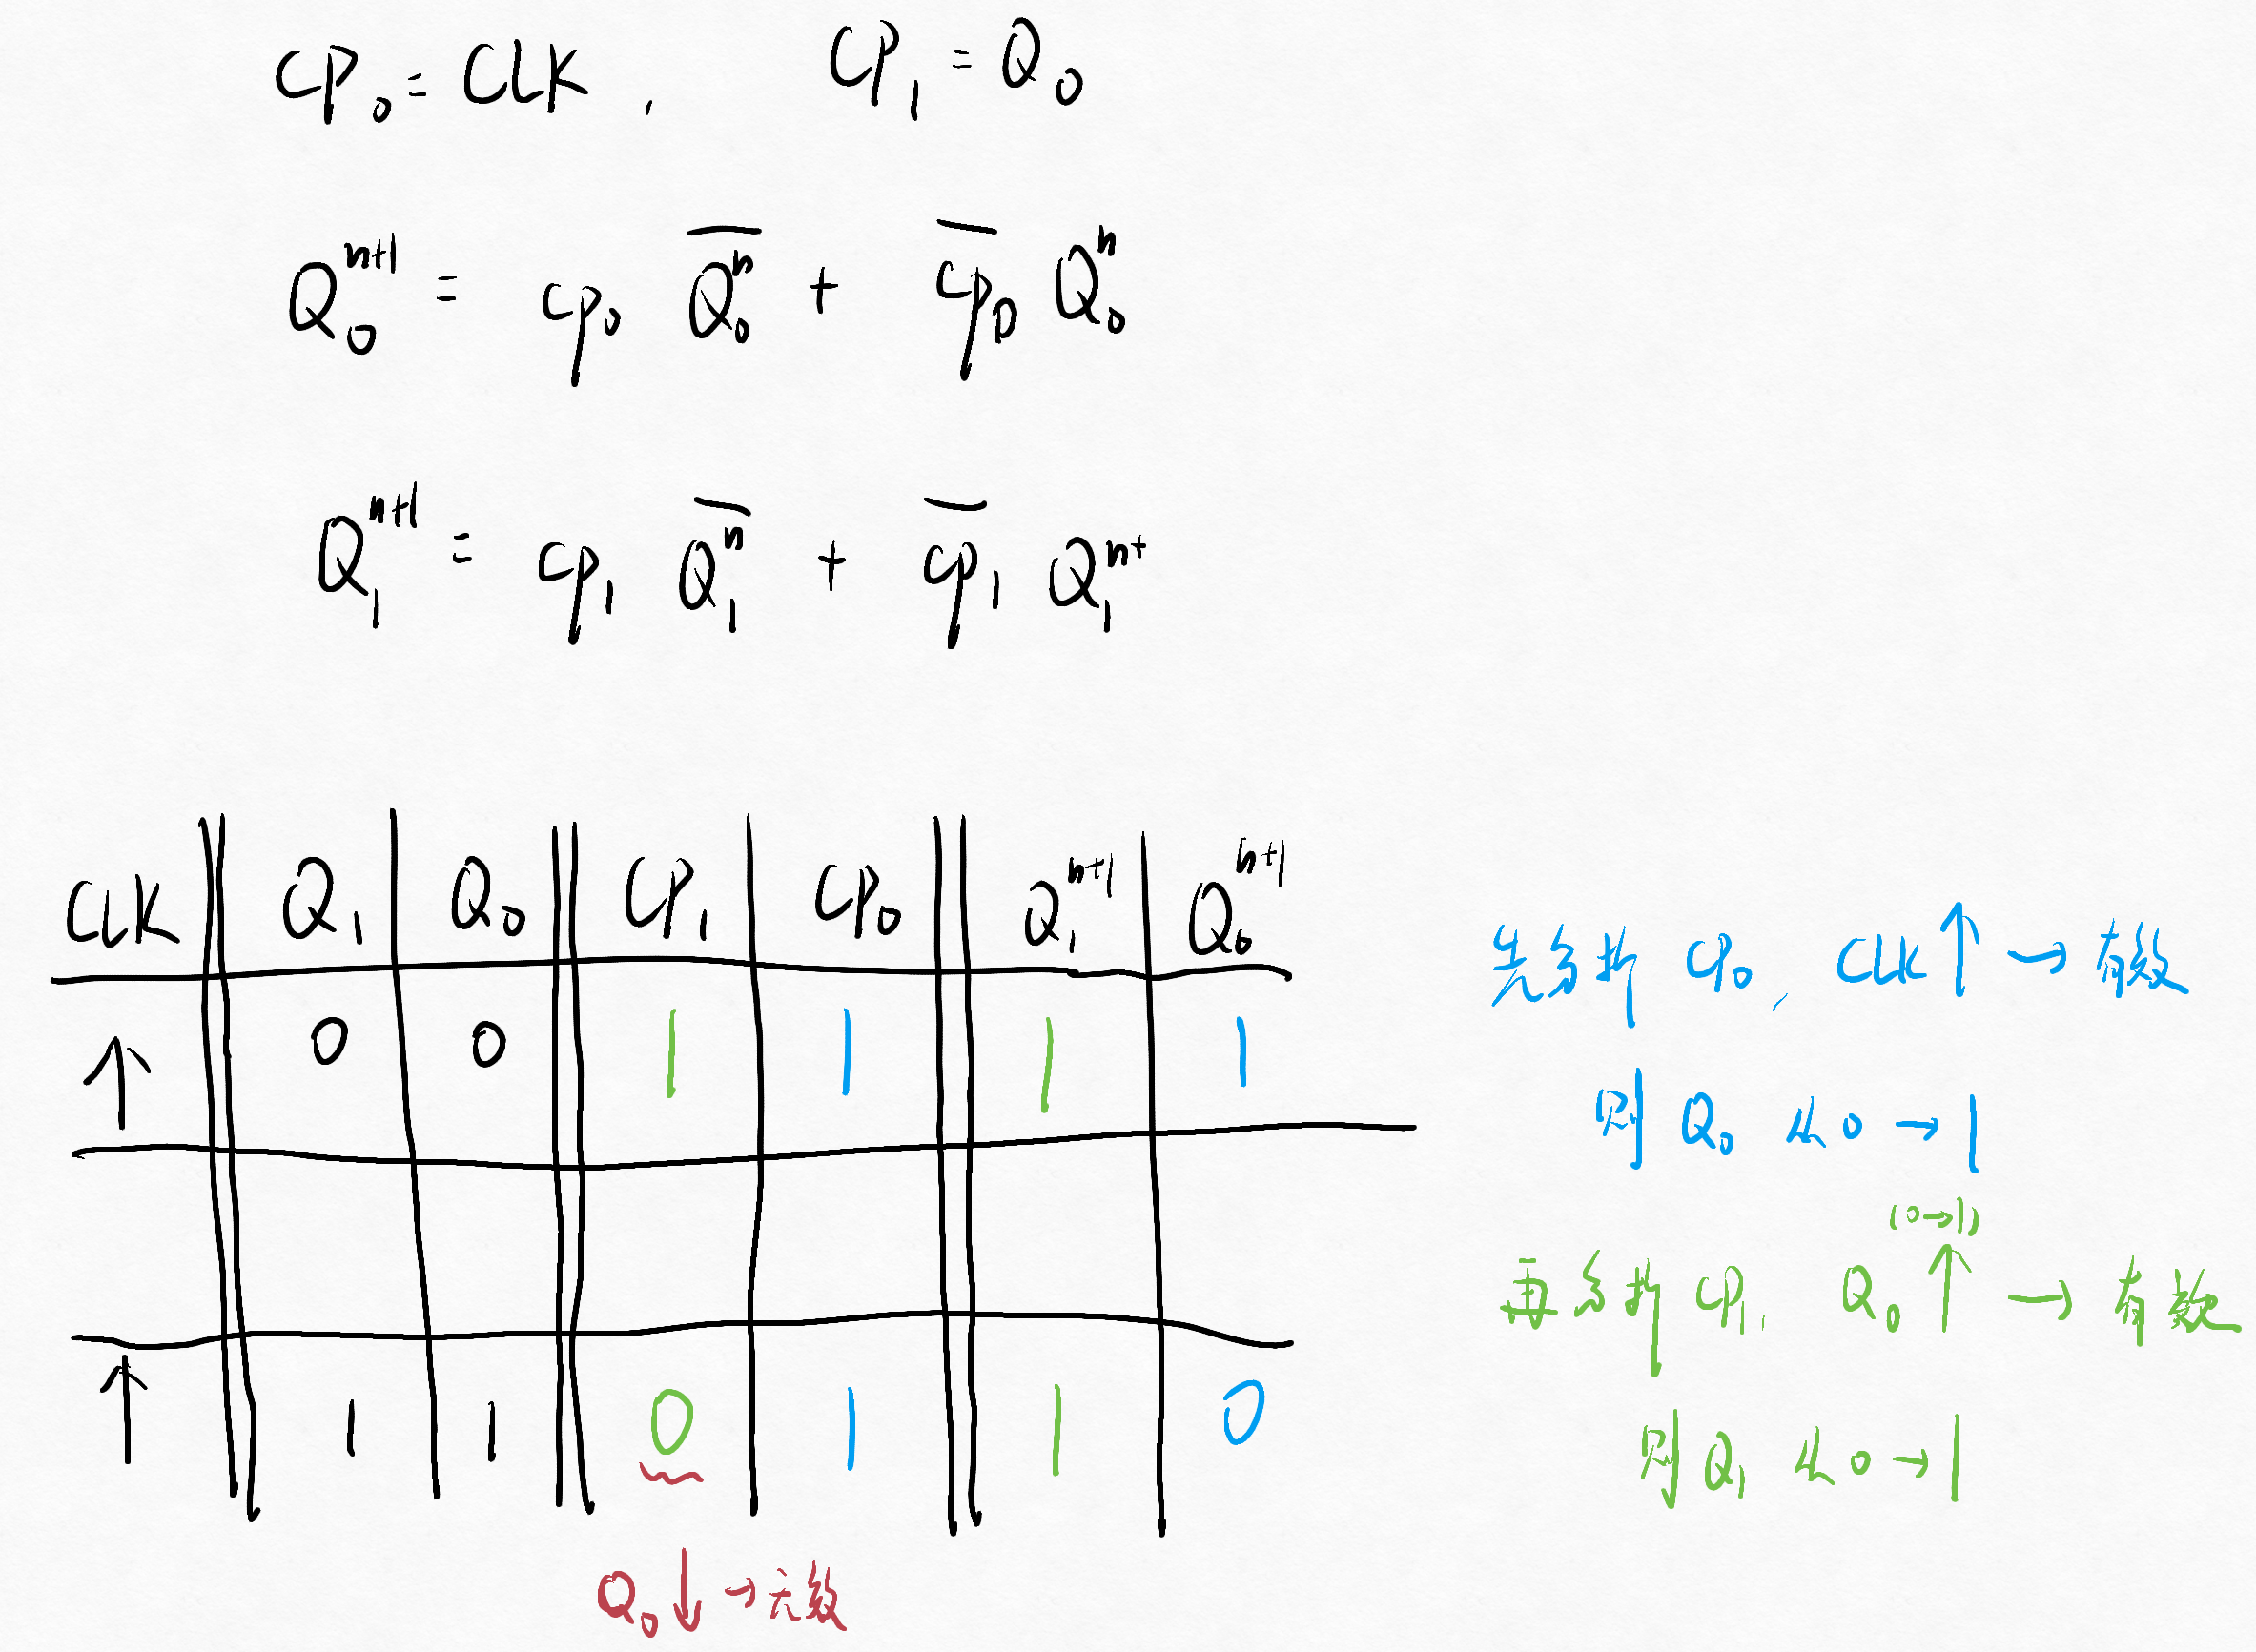 CP₀ = CLK, CP₁ = Q₀
Q₀ⁿ⁺¹ = cp₀ \overline{Q₀ⁿ} + \overline{cp₀} Q₀ⁿ
Q₁ⁿ⁺¹ = cp₁ \overline{Q₁ⁿ} + \overline{cp₁} Q₁ⁿ⁺
CLK Q₁ Q₀ CP₁ CP₀ Q₁ⁿ⁺¹ Q₀ⁿ⁺¹
↑ 0 0 1 1 1 1
↑ 1 1 0 1 1 0
Q₀↓→无效
先分析 CP₀, CLK↑→有效
则 Q₀ 从 0→1
(0→1)
再分析 CP₁, Q₀↑→有效
则 Q₁ 从 0→1